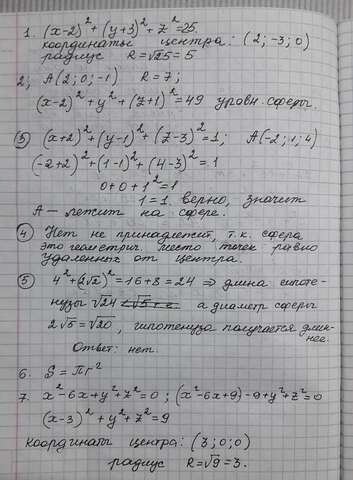 1. (x-2)² + (y+3)² + z² = 25
координаты центра: (2; -3; 0)
радиус R = √25 = 5
2; A(2; 0; -1) R = 7;
(x-2)² + y² + (z+1)² = 49 уровн. сферы.
③ (x+2)² + (y-1)² + (z-3)² = 1; A(-2; 1; 4)
(-2+2)² + (1-1)² + (4-3)² = 1
0+0+1² = 1
1=1 верно, значит
A – лежит на сфере.
④ Нет не принадлежит, т.к. сфера
это геометрич. место точек равно
удаленных от центра.
⑤ 4² + (2√2)² = 16+8 = 24 ⇒ длина гипоте-
нузы √24 а диаметр сферы
2√5 = √20, гипотенуза получается длин-
нее.
Ответ: нет.
6. S = πr²
7. x² - 6x + y² + z² = 0; (x² - 6x + 9) - 9 + y² + z² = 0
(x-3)² + y² + z² = 9
Координаты центра: (3; 0; 0)
радиус R = √9 = 3.